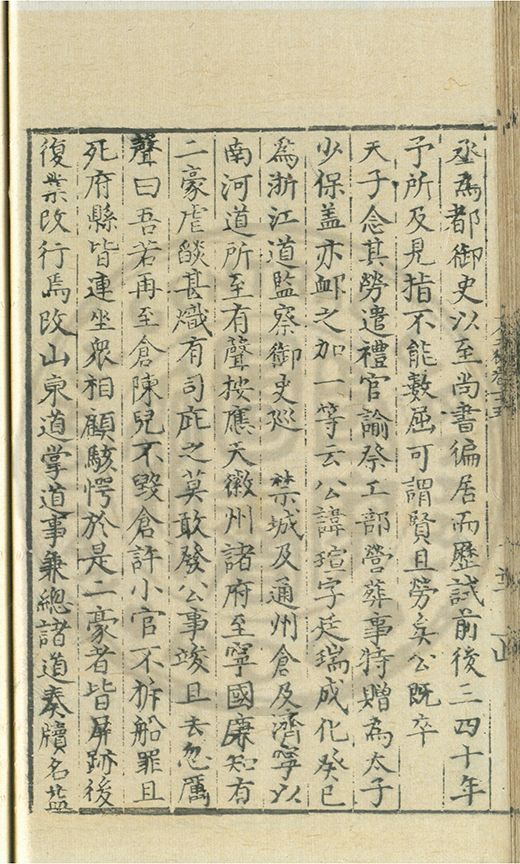 丞為都御史以至尚書徧居而歷試前後三四十年
予所及見指不能數屈可謂賢且勞矣公既卒
天子念其勞遣禮官諭祭工部營葬事特贈為太子
少保盖亦卹之加一等云公諱瑄字廷瑞成化癸巳
為浙江道監察御史巡 禁城及通州倉及濟寧以
南河道所至有聲按應天徽州諸府至寧國廉知有
二豪虐燄甚熾有司庇之莫敢發公事竣且去忽厲
聲曰吾若再至倉陳兒不毀倉許小官不拆船罪且
死府縣皆連坐衆相顧駭愕於是二豪者皆屏跡後
復業改行焉改山東道掌道事兼總諸道奏牘名藍